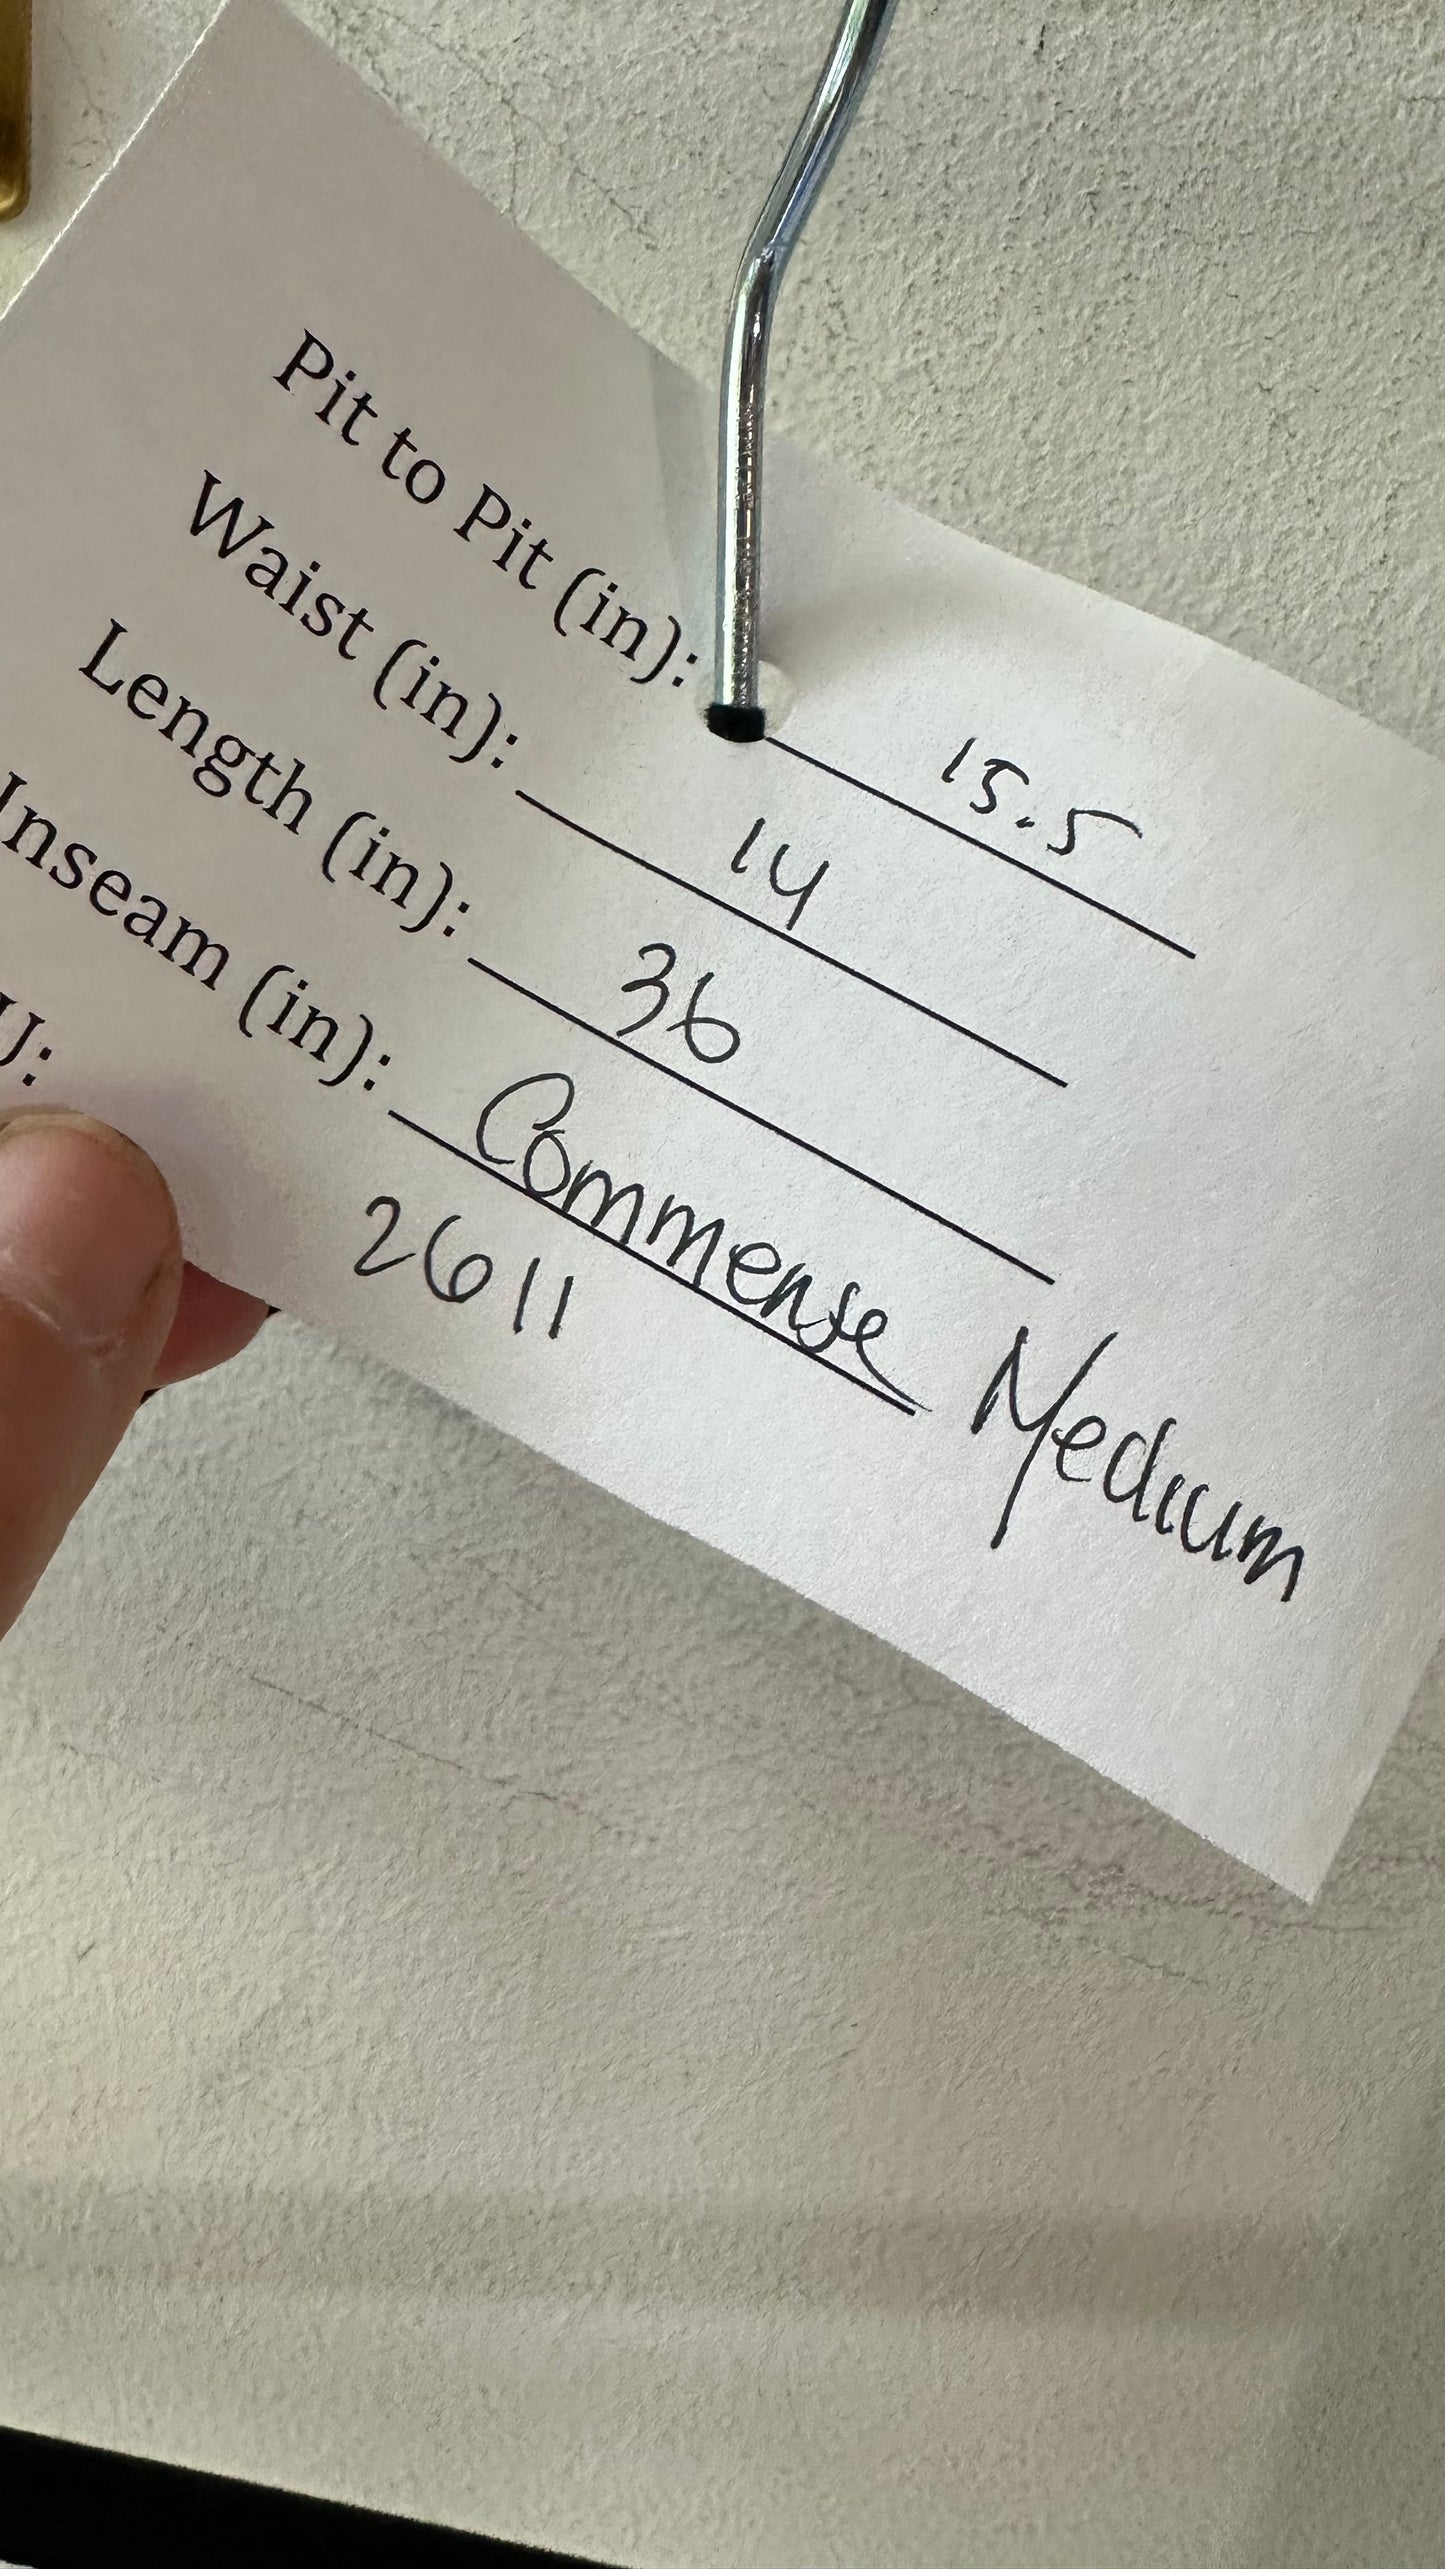 Pit to Pit (in): 15.5
Waist (in): 14
Length (in): 36
Inseam (in): Commense Medium
U: 2611